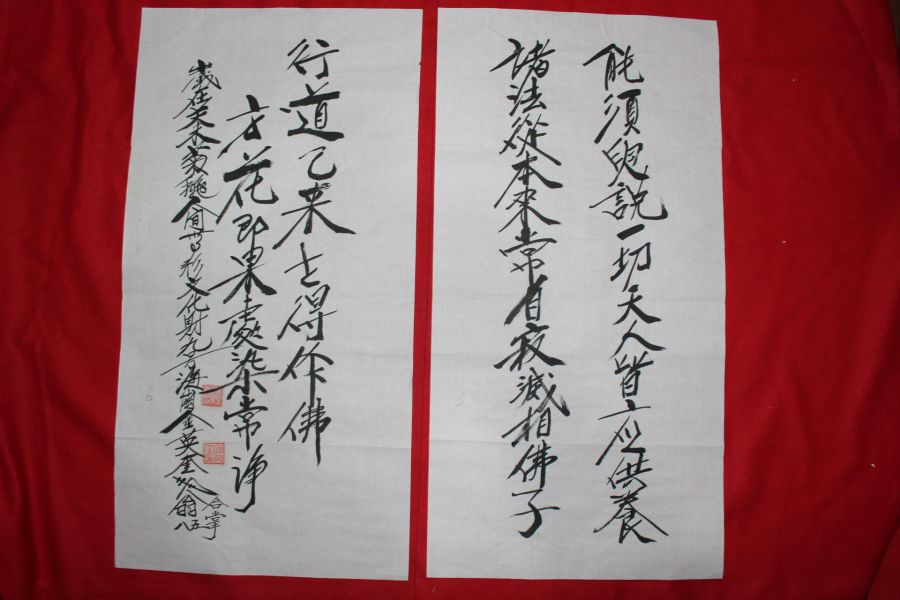 能須臾說一切天人皆應供養
諸法從本來常自寂滅相佛子
行道已来世得作佛
方花即果處染常淨
歲在辛未菊秋人間무형文化財 海國金英奎 翁八五
合掌